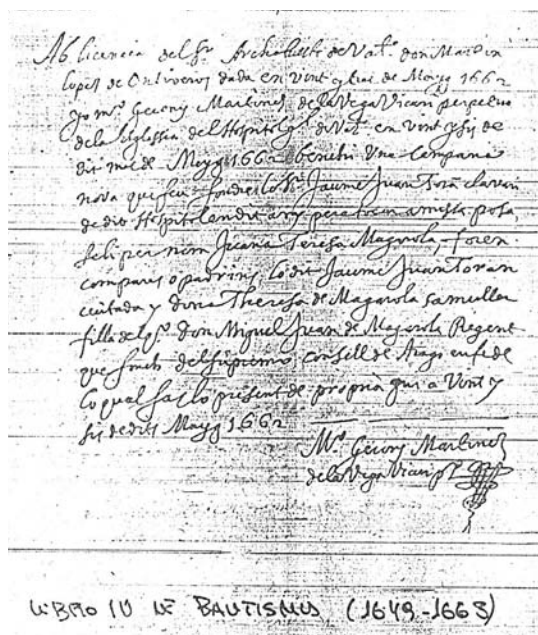 Ab licencia del Sr. Archebisbe de Val.a don Martin
lopes de Ontiveros dada en vint y de Maig 1662
yo Mn. Geroni Martines de la Vega Vicari perpetuo
de la Iglessia del Hospital de Val.a en vint y sis de
dit mes de Maig 1662 benehi Una Campana
nova que feu fondre lo Sr. Jaume Juan Toran
de dit Hospital en dit any pera a missa posa
seli per nom Juana Teresa Magarola, foren
compares o padrins lo dit Jaume Juan Toran
ciutada y dona Theresa de Magarola sa muller
filla del don Miguel Juan de Magarola Regent
que fonch del supremo consell de Arago en fe de
lo qual fas lo present de propria ma a Vint y
sis de dit Maig 1662
Mn. Geroni Martines
de la Vega Vicari pl.
LIBRO IV DE BAUTISMOS (1649-1668)